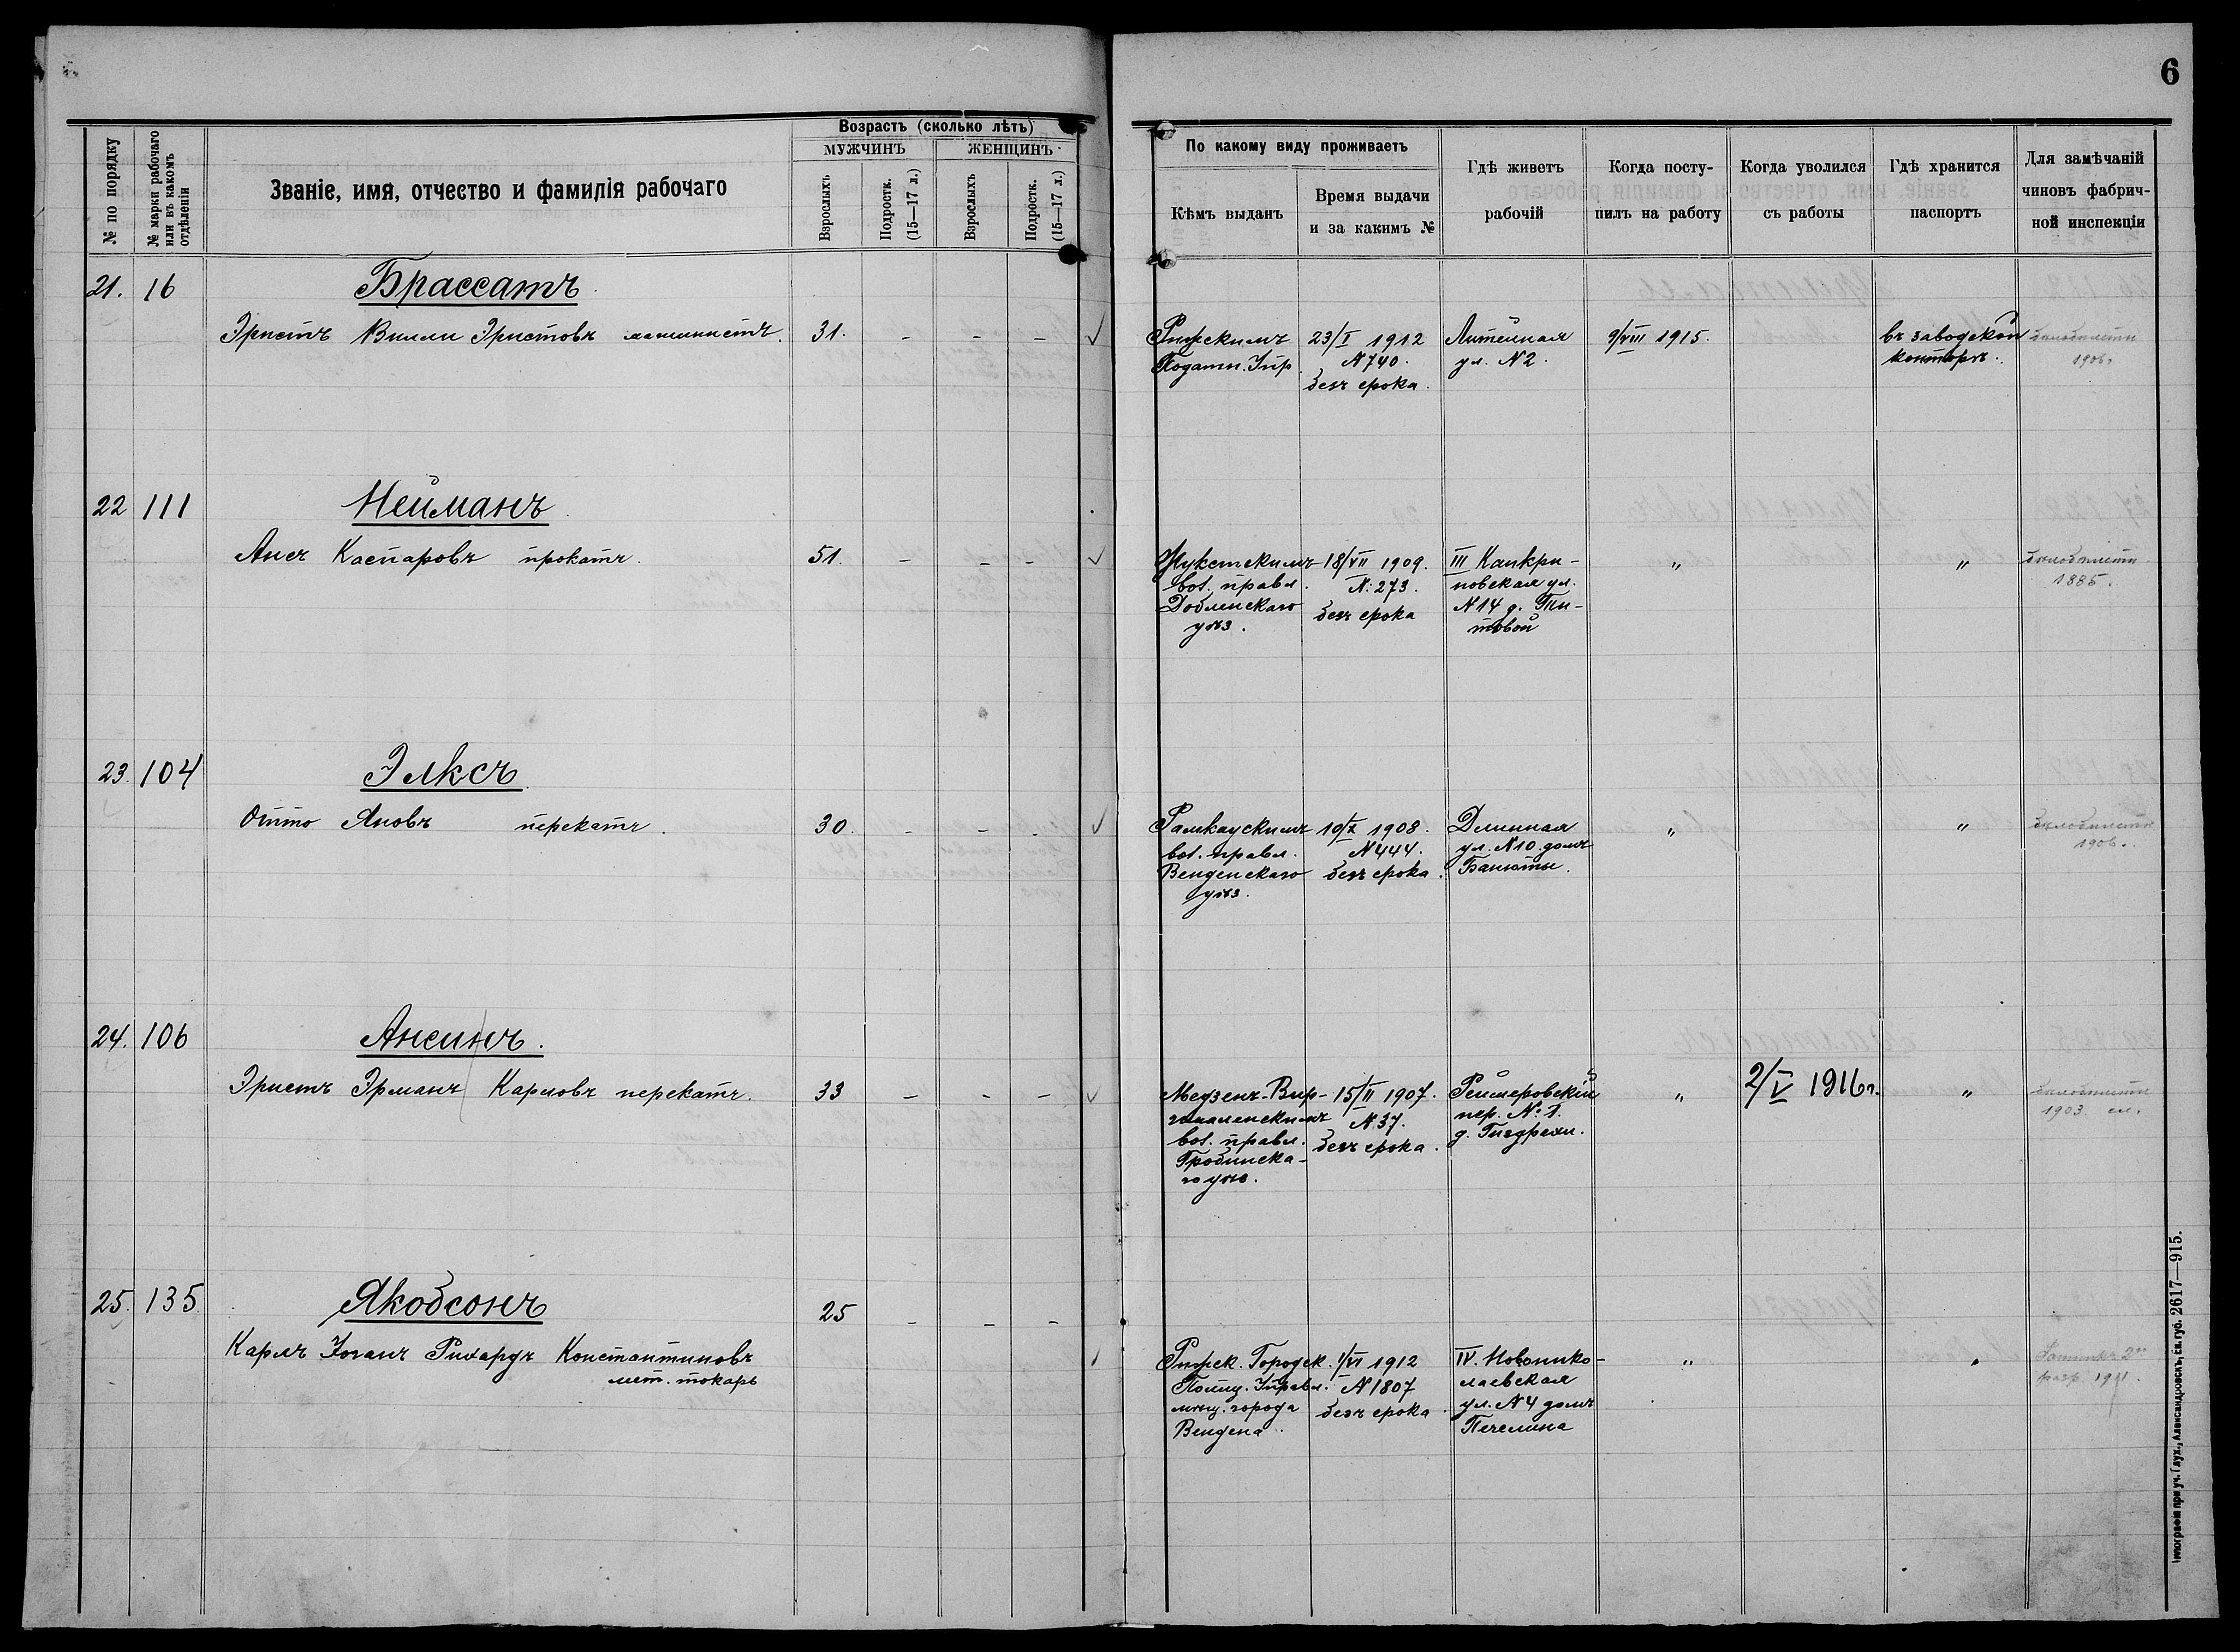 6
№ по порядку
№ марки рабочаго или въ какомъ отдѣленіи
Званіе, имя, отчество и фамилія рабочаго
Возрастъ (сколько лѣтъ)
МУЖЧИНЪ
ЖЕНЩИНЪ
Взрослыхъ
Подростк. (15—17 л.)
Взрослыхъ
Подростк. (15—17 л.)
По какому виду проживаетъ
Кѣмъ выданъ
Время выдачи
и за какимъ №
Гдѣ живетъ
рабочій
Когда посту-
пилъ на работу
Когда уволился
съ работы
Гдѣ хранится
паспортъ
Для замѣчаній
чиновъ фабрич-
ной инспекціи
21. 16
Брассатъ
Эрнстъ Вилли Эрнстовъ машинистъ. 31. - - -
Рижскимъ
Податн. Упр.
23/I 1912
N 740.
безъ срока.
Литейная
ул. N 2.
9/VIII 1915.
въ заводской
конторѣ.
1906.
22 111
Нейманъ
Ансъ Каспаровъ прокатч. 51. - - -
вол. правл.
Добленскаго
уѣз.
18/VII 1909.
N: 273.
безъ срока
III Канкри-
новская ул.
N 14 д. Ти-
товой
"
"
1885.
23. 104
Элксъ
Отто Яновъ перекатч. 30. - - -
Рамкаускимъ
вол. правл.
Венденскаго
уѣз.
10/X 1908.
N 444.
безъ срока.
Длинная
ул. N 10 домъ
"
"
1906.
24. 106
Ансинъ.
Эрнстъ Эрманъ Карловъ перекатч. 33 - - -
Медзенъ-Вир-
вол. правл.
Гробинска-
го уѣз.
15/II 1907.
N 37.
безъ срока.
пер. №: 1.
"
2/V 1916 г.
"
1903
25. 135.
Якобсонъ
25 - - -
Карлъ Іоганъ Рихардъ Константиновъ
мет. токарь
Рижск. Городск.
Полиц. Управл.
мѣщ. города
Вендена.
1/VI 1912
N 1807
безъ срока.
IV. Новонико-
лаевская
ул. N 4 домъ
Печелина
"
"
1911.
2617—915.